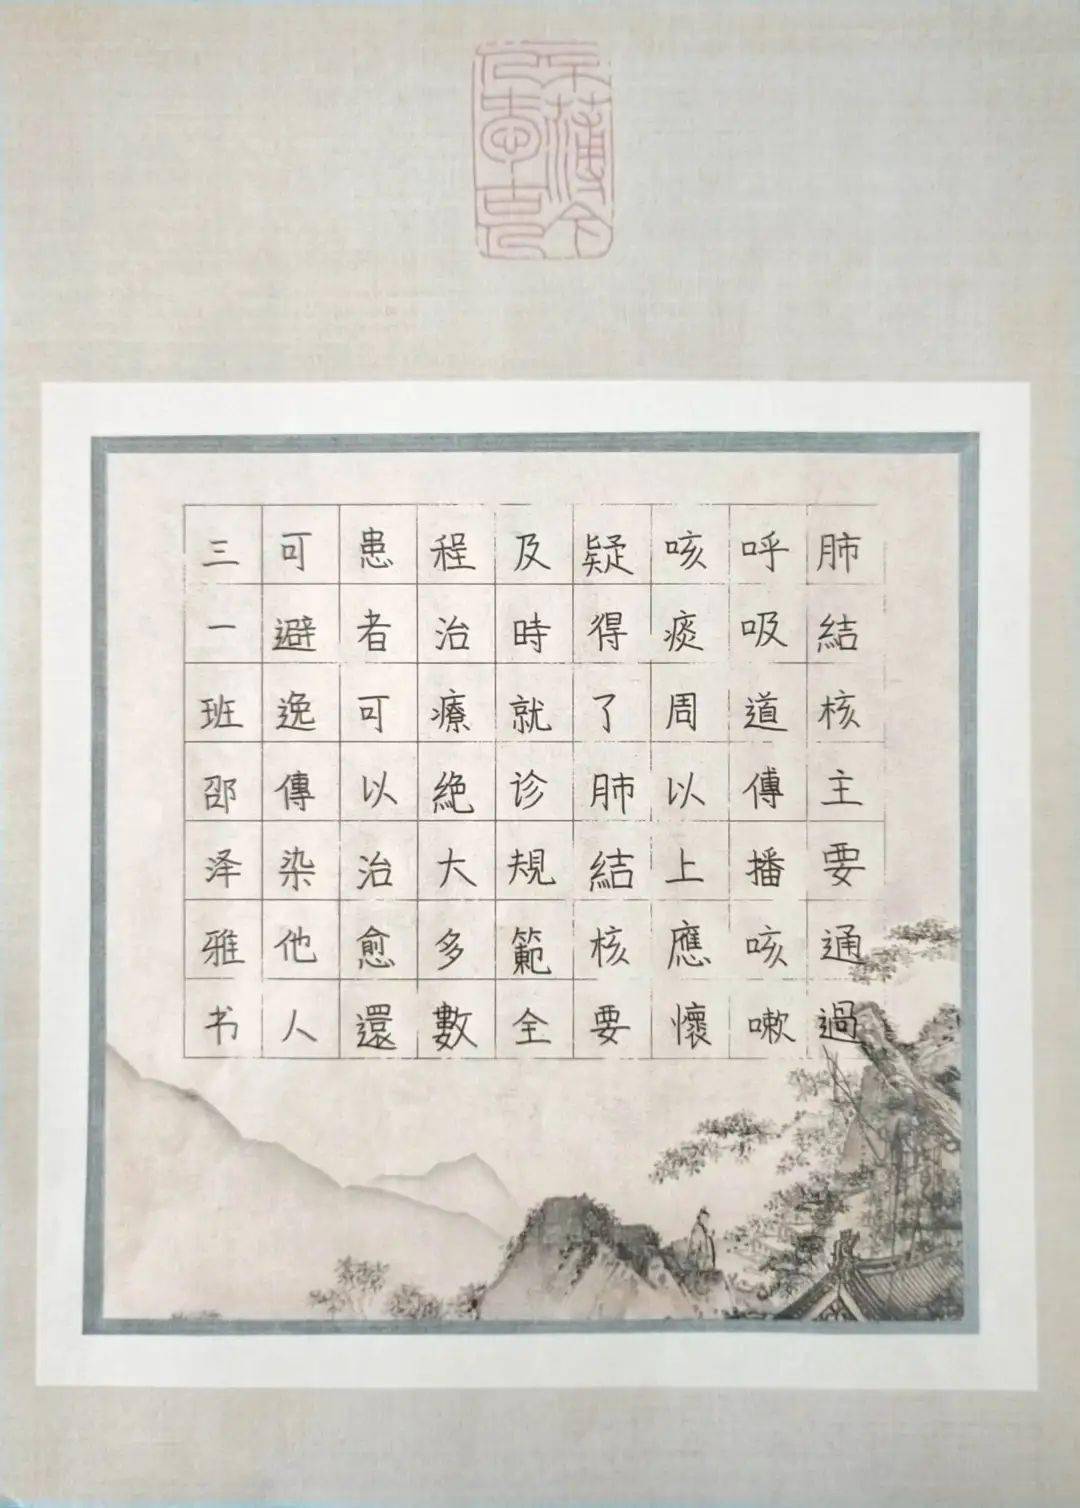 肺結核主要通過
呼吸道傳播咳嗽
咳痰周以上應懷
疑得了肺結核要
及時就诊規範全
程治療絶大多數
患者可以治愈還
可避逸傳染他人
三一班邵泽雅书